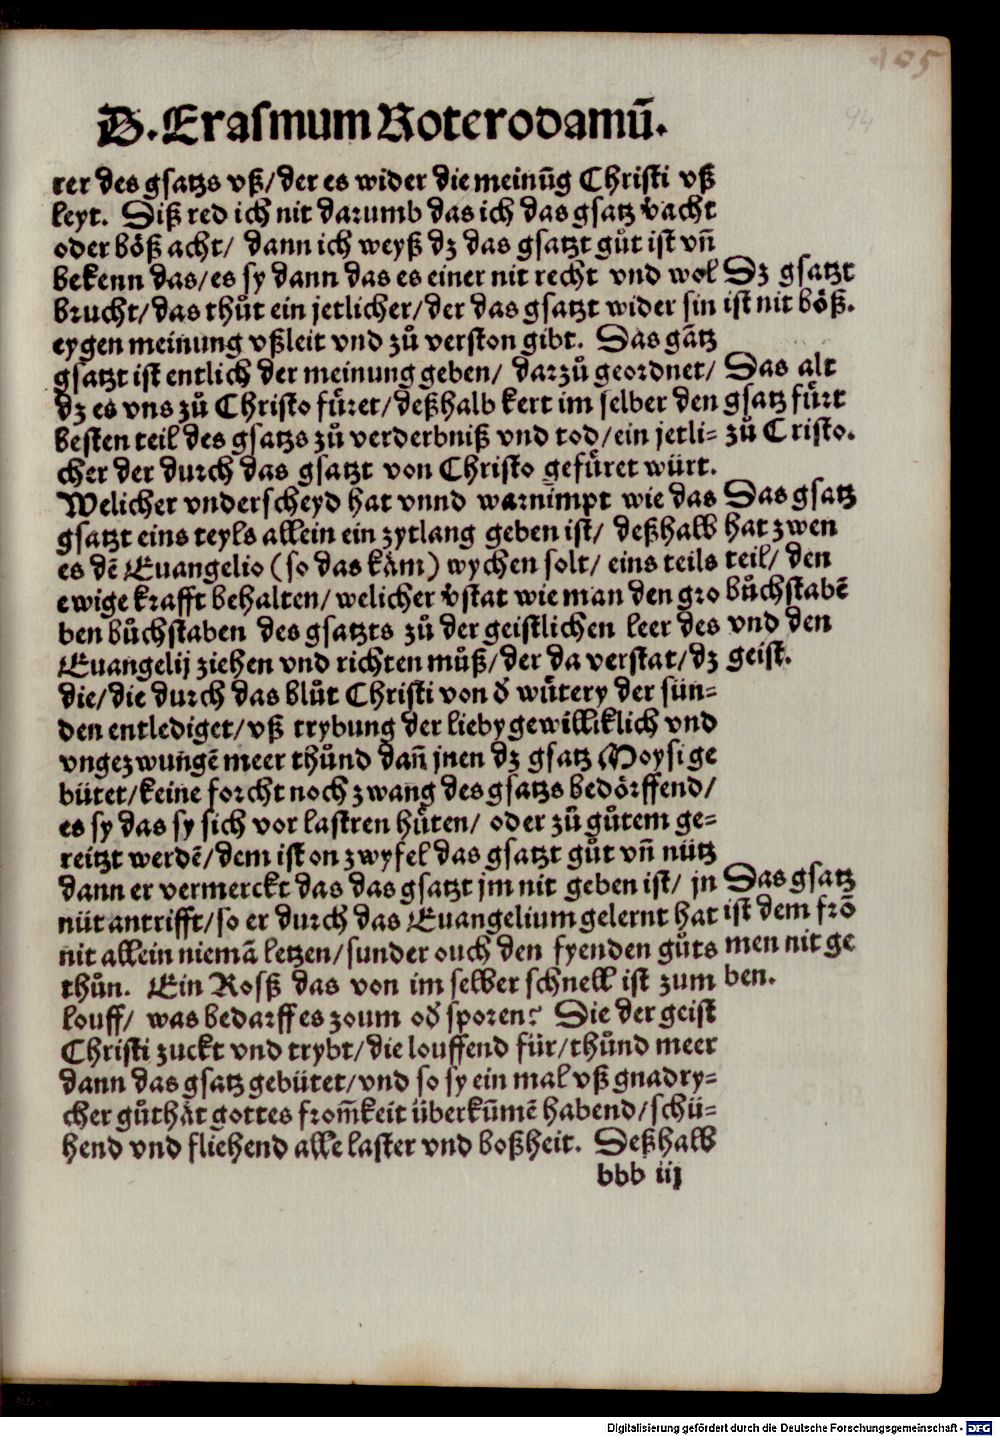 105
94
D. Erasmum Roterodamū.
rer des gsatzs vß/der es wider die meinūg Christi vß
leyt. Diß red ich nit darumb das ich das gsatz v̄acht
oder böß acht/ dann ich weyß dz das gsatzt gůt ist vn̄
bekenn das/es sy dann das es einer nit recht vnd wol
brucht/das thůt ein jetlicher/der das gsatzt wider sin
eygen meinung vßleit vnd zů verston gibt. Das gātz
gsatzt ist entlich der meinung geben/ darzů geordnet/
dz es vns zů Christo füret/deßhalb kert im selber den
besten teil des gsatzs zů verderbniß vnd tod/ein jetli=
cher der durch das gsatzt von Christo gefüret würt.
Welicher vnderscheyd hat vnnd warnimpt wie das
gsatzt eins teyls allein ein zytlang geben ist/ deßhalb
es dē Euangelio (so das käm) wychen solt/ eins teils
ewige krafft behalten/welicher v̄stat wie man den gro
ben bůchstaben des gsatzts zů der geistlichen leer des
Euangelij ziehen vnd richten můß/der da verstat/dz
die/die durch das blůt Christi von d̄ wütery der sün=
den entlediget/vß trybung der lieby gewilliklich vnd
vngezwungē meer thůnd dan̄ jnen dz gsatz Moysi ge
bütet/keine forcht noch zwang des gsatzs bedörffend/
es sy das sy sich vor lastren hüten/ oder zů gůtem ge=
reitzt werdē/dem ist on zwyfel das gsatzt gůt vn̄ nütz
dann er vermerckt das das gsatzt jm nit geben ist/ jn
nüt antrifft/so er durch das Euangelium gelernt hat
nit allein niemā letzen/sunder ouch den fyenden gůts
thůn. Ein Rosß das von im selber schnell ist zum
louff/ was bedarff es zoum od̄ sporen? Die der geist
Christi zuckt vnd trybt/die louffend für/thůnd meer
dann das gsatz gebütet/vnd so sy ein mal vß gnadry=
cher gůthät gottes from̄keit überkum̄ē habend/schü=
hend vnd fliehend alle laster vnd boßheit. Deßhalb
bbb iij
Dz gsatzt
ist nit böß.
Das alt
gsatz fürt
zů Cristo.
Das gsatz
hat zwen
teil/ den
bůchstabē
vnd den
geist.
Das gsatz
ist dem frō
men nit ge
ben.
Digitalisierung gefördert durch die Deutsche Forschungsgemeinschaft - DFG